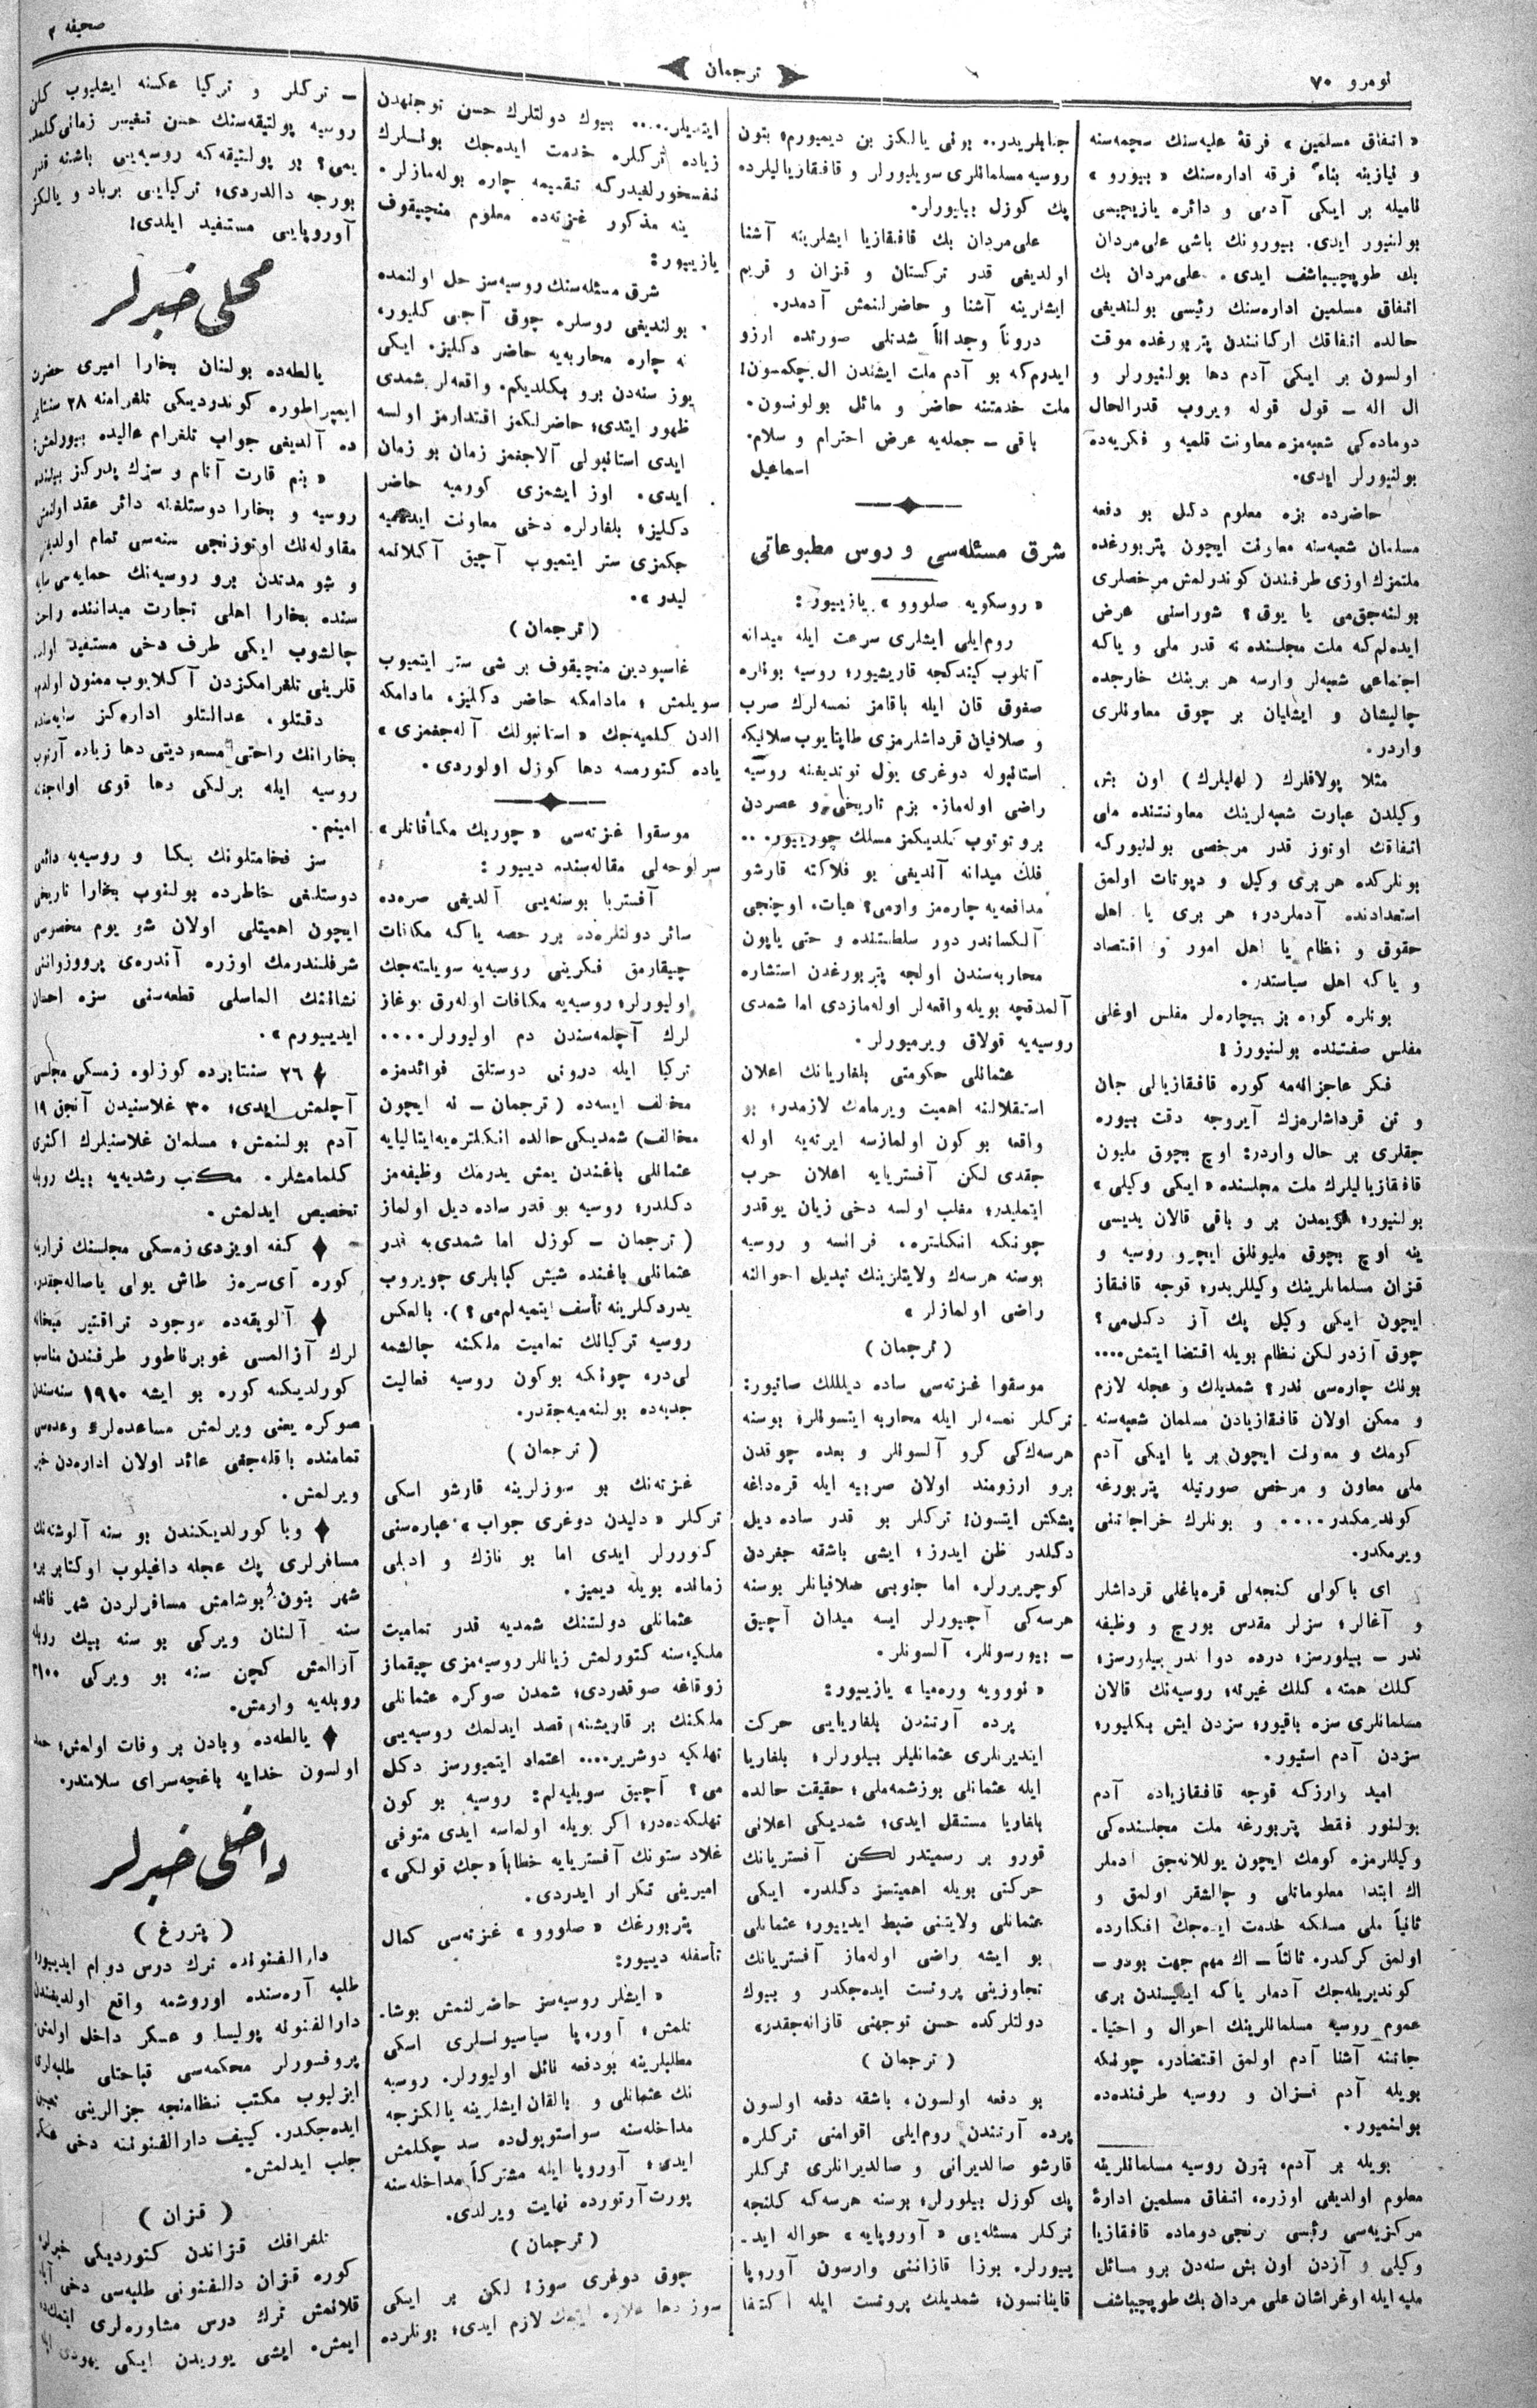 نومرو ۷۰
ترجمان
صحیفه ۲
« اتفاق مسلمین » فرقهٔ علیه‌سنك سچمه‌سنه
و نیازینه بناءً فرقه اداره‌سنك « بیورو »
نامیله بر ایكی آدمی و دائره یازیجیسی
بولنیور ایدی. بیورونك باشی علی مردان
بك طوپچیباشف ایدی. علی مردان بك
اتفاق مسلمین اداره‌سنك رئیسی بولندیغی
حالده اتفاقك اركانندن پتربورغده موقت
اولسون بر ایكی آدم دها بولنیورلر و
ال اله ــ قول قوله ویروب قدرالحال
دوماده‌كی شعبه‌مزه معاونت قلمیه و فكریه‌ده
بولنیورلر ایدی.
حاضرده بزه معلوم دكل بو دفعه
مسلمان شعبه‌سنه معاونت ایچون پتربورغده
ملتمزك اوزی طرفندن كوندرلمش مرخصلری
بولنه‌جق‌می یا یوق؟ شوراسنی عرض
ایده‌لم‌كه ملت مجلسنده نه قدر ملی و یاكه
اجتماعی شعبه‌لر وارسه هر برینك خارجده
چالیشان و ایشلیان بر چوق معاونلری
واردر.
مثلا پولاقلرك (لهلیلرك) اون بش
وكیلدن عبارت شعبه‌لرینك معاونتنده ملی
اتفاقك اوتوز قدر مرخصی بولنیوركه
بونلركده هر بری وكیل و دپوتات اولمق
استعدادنده آدملردر؛ هر بری یا اهل
حقوق و نظام یا اهل امور و اقتصاد
و یاكه اهل سیاستدر.
بونلره كوره بز بیچاره‌لر مفلس اوغلی
مفلس صفتنده بولنیورز!
فكر عاجزانه‌مه كوره قافقازیالی جان
و تن قرداشلرمزك آیروجه دقت بیوره
جقلری بر حال واردر: اوچ بچوق ملیون
قافقازیالیلرك ملت مجلسنده « ایكی وكیلی »
بولنیور؛ قریمدن بر و باقی قالان یدیسی
ینه اوچ بچوق ملیونلق ایچرو روسیه و
قزان مسلمانلرینك وكیللریدر؛ قوجه قافقاز
ایچون ایكی وكیل پك آز دكل‌می؟
چوق آزدر لكن نظام بویله اقتضا ایتمش....
بونك چاره‌سی ندر؟ شمدیلك و عجله لازم
و ممكن اولان قافقازیادن مسلمان شعبه‌سنه
كومك و معاونت ایچون بر یا ایكی آدم
ملی معاون و مرخص صورتیله پتربورغه
كوندرمكدر.... و بونلرك خراجاتنی
ویرمكدر.
ای باكولی كنجه‌لی قره‌باغلی قرداشلر
و آغالر؛ سزلر مقدس بورج و وظیفه
ندر ــ بیلورسز؛ درده دوا ندر بیلورسز؛
كلك همته، كلك غیرته؛ روسیه‌نك قالان
مسلمانلری سزه باقیور؛ سزدن ایش بكلیور؛
سزدن آدم استیور.
امید وارزكه قوجه قافقازیاده آدم
بولنور فقط پتربورغه ملت مجلسنده‌كی
وكیللرمزه كومك ایچون یوللانه‌جق آدملر
اك ابتدا معلوماتلی و چالشقر اولمق و
ثانیاً ملی مسلكه خدمت ایده‌جك افكارده
اولمق كركدر. ثالثاً ــ اك مهم جهت بودر ــ
كوندیریله‌جك آدملر یاكه ایكیسندن بری
عموم روسیه مسلمانلرینك احوال و احتیا-
جاتنه آشنا آدم اولمق اقتضادر. چونكه
بویله آدم قزان و روسیه طرفنده‌ده
بولنمیور.
بویله بر آدم، بتون روسیه مسلمانلرینه
معلوم اولدیغی اوزره، اتفاق مسلمین ادارهٔ
مركزیه‌سی رئیسی برنجی دوماده قافقازیا
وكیلی و آزدن اون بش سنه‌دن برو مسائل
ملیه ایله اوغراشان علی مردان بك طوپچیباشف
جنابلریدر.. بونی یالكز بن دیمیورم؛ بتون
روسیه مسلمانلری سویلیورلر و قافقازیالیلرده
پك كوزل بیلیورلر.
علی مردان بك قافقازیا ایشلرینه آشنا
اولدیغی قدر تركستان و قزان و قریم
ایشلرینه آشنا و حاضرلنمش آدمدر.
دروناً وجداناً شدتلی صورتده ارزو
ایدرم‌كه بو آدم ملت ایشندن ال چكمسون!
ملت خدمتنه حاضر و مائل بولونسون.
باقی ــ جمله‌یه عرض احترام و سلام.
اسماعیل
شرق مسئله‌سی و روس مطبوعاتی
« روسكویه صلووو » یازییور:
روم‌ایلی ایشلری سرعت ایله میدانه
آتلوب كیتدكجه قاریشیور؛ روسیه بونلره
صغوق قان ایله باقامز نمسه‌لرك صرب
و صلافیان قرداشلرمزی طاپتایوب سلانیكه
استانبوله دوغری یول توتدیغنه روسیه
راضی اوله‌ماز. بزم تاریخی و عصردن
برو توتوب كلدیكمز مسلك چوریبور. ..
فلك میدانه آتدیغی بو فلاكته قارشو
مدافعه‌یه چاره‌مز وارمی؟ هیهات. اوچنجی
آلكساندر دور سلطنتنده و حتی یاپون
محاربه‌سندن اولجه پتربورغدن استشاره
آلمدقچه بویله واقعه‌لر اوله‌مازدی اما شمدی
روسیه‌یه قولاق ویرمیورلر.
عثمانلی حكومتی بلغاریانك اعلان
استقلالنه اهمیت ویرمامك لازمدر؛ بو
واقعه بو كون اولمازسه ایرته‌یه اوله
جقدی لكن آفستریایه اعلان حرب
ایتملیدر؛ مغلب اولسه دخی زیان یوقدر
چونكه انكلتره، فرانسه و روسیه
بوسنه هرسك ولایتلرینك تبدیل احوالنه
راضی اولمازلر »
(ترجمان)
موسقوا غزته‌سی ساده دیللك ساتیور:
تركلر نمسه‌لر ایله محاربه ایتسونلر؛ بوسنه
هرسك‌كی كرو آلسونلر و بعده چوقدن
برو ارزومند اولان صربیه ایله قره‌داغه
پشكش ایتسون! تركلر بو قدر ساده دیل
دكلدر ظن ایدرز؛ ایشی باشقه جغردن
كوچیریرلر. اما جنوبی صلافیانلر بوسنه
هرسه‌كی آچیورلر ایسه میدان آچیق
ــ بیورسونلر، آلسونلر.
« نوویه وره‌میا » یازییور:
پرده آرتندن بلغاریایی حركت
ایندیرنلری عثمانلیلر بیلورلر؛ بلغاریا
ایله عثمانلی بوزشمه‌ملی؛ حقیقت حالده
بلغاریا مستقل ایدی؛ شمدیكی اعلانی
قورو بر رسمیتدر لكن آفستریانك
حركتی بویله اهمیتسز دكلدر. ایكی
عثمانلی ولایتنی ضبط ایدییور؛ عثمانلی
بو ایشه راضی اوله‌ماز آفستریانك
تجاوزینی پروتست ایده‌جكدر و بیوك
دولتلركده حسن توجهنی قازانه‌جقدر»
(ترجمان)
بو دفعه اولسون، باشقه دفعه اولسون
پرده آرتندن روم‌ایلی اقوامنی تركلره
قارشو صالدیرانی و صالدیرانلری تركلر
پك كوزل بیلورلر؛ بوسنه هرسه‌كه كلنجه
تركلر مسئله‌یی « آوروپایه » حواله اید-
ییورلر. بوزا قازاننی وارسون آوروپا
قایناتسون؛ شمدیلك پروتست ایله اكتفا
ایتدیلر..... بیوك دولتلرك حسن توجهندن
زیاده تركلره خدمت ایده‌جك بونلرك
نفسخورلغیدركه تقسیمه چاره بوله‌مازلر.
ینه مذكور غزته‌ده معلوم منچیقوف
یازییور:
شرق مسئله‌سنك روسیه‌سز حل اولنمده
بولندیغی روسلره چوق آجی كلیور،
نه چاره محاربه‌یه حاضر دكلیز. ایكی
یوز سنه‌دن برو بكلدیكم. واقعه‌لر شمدی
ظهور ایتدی؛ حاضرلكمز اقتدارمز اولسه
ایدی استانبولی آلاجغمز زمان بو زمان
ایدی. اوز ایشمزی كورمیه حاضر
دكلیز؛ بلغارلره دخی معاونت ایده‌میه
جكمزی ستر ایتمیوب آچیق آكلاتمه
لیدر ».
(ترجمان)
غاسپودین منچیقوف بر شی ستر ایتمیوب
سویلمش؛ مادامكه حاضر دكلیز، مادامكه
الدن كلمیه‌جك « استانبولك آله‌جغمزی »
یاده كتورمسه دها كوزل اولوردی.
موسقوا غزته‌سی « چوریك مكافاتلر »
سرلوحه‌لی مقاله‌سنده دییور:
آفستریا بوسنه‌یی آلدیغی صره‌ده
سائر دولتلره‌ده برر حصه یاكه مكافات
چیقارمق فكرینی روسیه‌یه سویلمته‌جك
اولیورلر؛ روسیه‌یه مكافات اوله‌رق بوغاز
لرك آچلمه‌سندن دم اولیورلر....
تركیا ایله درونی دوستلق فوائدمزه
مخالف ایسه‌ده (ترجمان ــ نه ایچون
مخالف) شمدیكی حالده انكلتره‌یه ایتالیایه
عثمانلی باغندن یمش یدرمك وظیفه‌مز
دكلدر؛ روسیه بو قدر ساده دیل اولماز
(ترجمان ــ كوزل اما شمدی‌یه قدر
عثمانلی باغنده شیش كبابلری چویروب
یدردكلرینه تأسف ایتمیه‌لم‌می؟). بالعكس
روسیه تركیانك تمامیت ملكنه چالشمه
لی‌در، چونكه بوكون روسیه فعالیت
جدیه‌ده بولنه‌میه‌جقدر.
(ترجمان)
غزته‌نك بو سوزلرینه قارشو اسكی
تركلر « دلیدن دوغری جواب » عباره‌سنی
كتوررلر ایدی اما بو نازك و ادبلی
زمانده بویله دیمیز.
عثمانلی دولتنك شمدیه قدر تمامیت
ملكیه‌سنه كتورلمش زیانلر روسیه‌مزی چیقماز
زوقاغه صوقدردی؛ شمدن صوكره عثمانلی
ملكنك بر قاریشنه قصد ایدلمك روسیه‌یی
تهلكیه دوشریر.... اعتماد ایتمیورسز دكل
می؟ آچیق سویلیه‌لم: روسیه بو كون
تهلكه‌ده‌در؛ اكر بویله اولماسه ایدی متوفی
غلاد ستونك آفستریایه خطاباً « چك قولكی »
امیرینی تكرار ایدردی.
پتربورغك « صلووو » غزته‌سی كمال
تأسفله دییور:
« ایشلر روسیه‌سز حاضرلنمش بوشا-
نلمش؛ آوروپا سیاسیونلری اسكی
مطلبلرینه بودفعه نائل اولیورلر. روسیه
نك عثمانلی و بالقان ایشلرینه یالكزجه
مداخله‌سنه سواستوپول‌ده سد چكلمش
ایدی؛ آوروپا ایله مشتركاً مداخله‌سنه
پورت آرتورده نهایت ویرلدی.
(ترجمان)
چوق دوغری سوز! لكن بر ایكی
سوز دها علاوه ایتمك لازم ایدی؛ بونلرده
ــ تركلر و تركیا عكسنه ایشلیوب كلن
روسیه پولتیقه‌سنك حسن تغییر زمانی كلمد
یمی؟ بر پولتیقه‌كه روسیه‌یی باشنه قدر
بورجه دالدردی؛ تركیایی برباد و یالكز
آوروپایی مستفید ایلدی!
محلی خبرلر
یالطه‌ده بولنان بخارا امیری حضرت
ایمپراطوره كوندردیكی تلغرامنه ۲۸ سنتابر
ده آلدیغی جواب تلغرام عالیده بیورلمش:
« بنم قارت آتام و سزك پدركز بیلنده
روسیه و بخارا دوستلغنه دائر عقد اولنمش
مقاوله‌نك اوتوزنجی سنه‌سی تمام اولدیغی
و شو مدتدن برو روسیه‌نك حمایه‌سی سایه
سنده بخارا اهلی تجارت میداننده راحت
چالشوب ایكی طرف دخی مستفید اولد
قلرینی تلغرامكزدن آكلایوب ممنون اولدم.
دقتلو، عدالتلو اداره‌كز سایه‌سنده
بخارانك راحتی مسعودیتی دها زیاده آرتوب
روسیه ایله برلكی دها قوی اوله‌جغنه
امینم.
سز فخامتلونك بكا و روسیه‌یه دائمی
دوستلغی خاطرده بولنوب بخارا تاریخی
ایچون اهمیتلی اولان شو یوم مخصوصی
شرفلندرمك اوزره آندره‌ی پرووزوانی
نشاننك الماسلی قطعه‌سنی سزه احسان
ایدییورم ».
♦ ۲۶ سنتابرده كوزلوه زمسكی مجلسی
آچلمش ایدی؛ ۳۰ غلاسنیدن آنجق ۱۹
آدم بولنمش؛ مسلمان غلاسنیلرك اكثری
كلمامشلر. مكتب رشدیه‌یه بیك روبله
تخصیص ایدلمش.
♦ كفه اویزدی زمسكی مجلسنك قرارینه
كوره آی‌سره‌ز طاش یولی یاصاله‌جقدر.
♦ آلوبقه‌ده موجود تراقتیر میخانه
لرك آزالمسی غوبرناطور طرفندن مناسب
كورلدیكنه كوره بو ایشه ۱۹۱۰ سنه‌سندن
صوكره یعنی ویرلمش مساعده‌لرك وعده‌سی
تمامنده باقله‌جغی عائد اولان اداره‌دن خبر
ویرلمش.
♦ وبا كورلدیكندن بو سنه آلوشته‌نك
مسافرلری پك عجله داغیلوب اوكتابر بره
شهر بتون بوشامش مسافرلردن شهر فائده
سنه آلنان ویركی بو سنه بیك روبله
آزالمش كچن سنه بو ویركی ۲۱۰۰
روبله‌یه وارمش.
♦ یالطه‌ده وبادن بر وفات اولمش؛ حمد
اولسون خدایه باغچه‌سرای سلامتدر.
داخلی خبرلر
(پتربورغ)
دارالفنونده ترك درس دوام ایدییور؛
طلبه آره‌سنده اوروشمه واقع اولدیغندن
دارالفنونه پولیسا و عسكر داخل اولمش.
پروفسورلر محكمه‌سی قباحتلی طلبه‌لری
ایزلیوب مكتب نظامنجه جزالرینی تعیین
ایده‌جكدر. كییف دارالفنوننه دخی عسكر
جلب ایدلمش.
(قزان)
تلغرافك قزاندن كتوردیكی خبرلره
كوره قزان دارالفنونی طلبه‌سی دخی آیا
قلانمش ترك درس مشاوره‌لری ایتمكده
ایمش. ایشی یوریدن ایكی یهودی